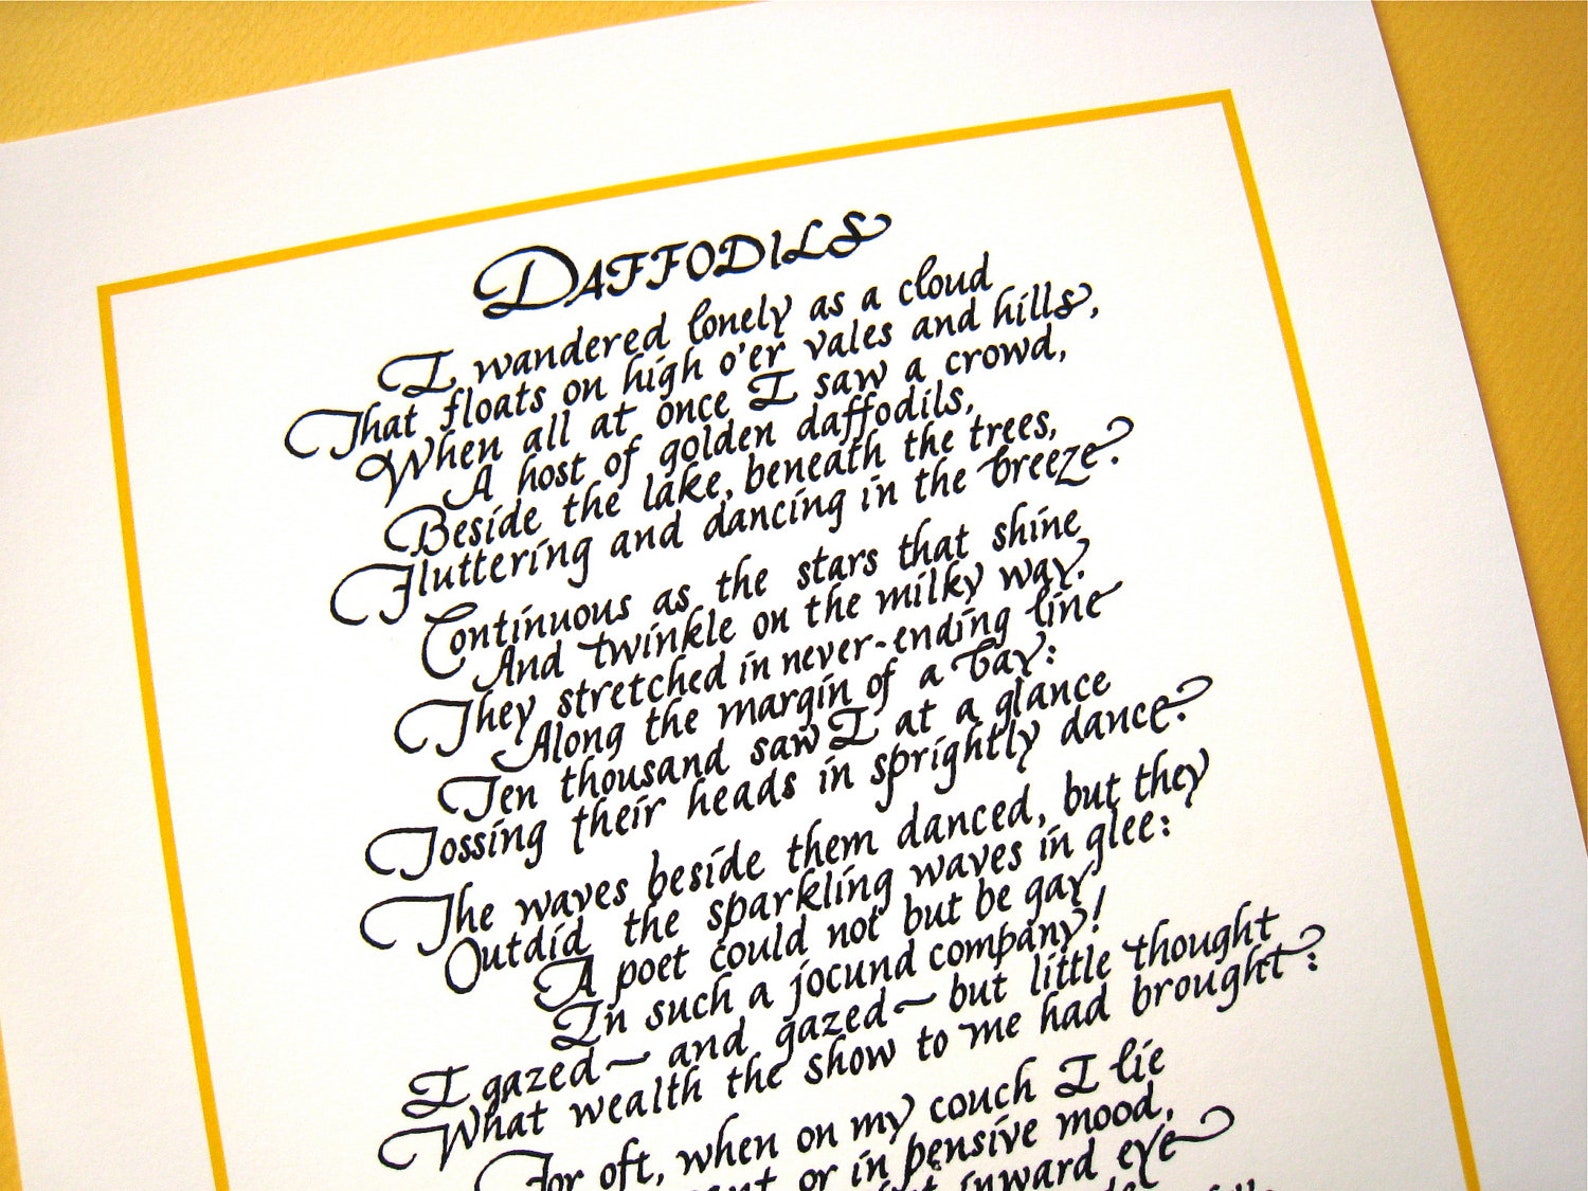 DAFFODILS
I wandered lonely as a cloud
That floats on high o'er vales and hills,
When all at once I saw a crowd,
A host of golden daffodils,
Beside the lake, beneath the trees,
Fluttering and dancing in the breeze.
Continuous as the stars that shine
And twinkle on the milky way.
They stretched in never-ending line
Along the margin of a bay:
Ten thousand saw I at a glance
Tossing their heads in sprightly dance.
The waves beside them danced, but they
Outdid the sparkling waves in glee:
A poet could not but be gay
In such a jocund company!
I gazed — and gazed — but little thought
What wealth the show to me had brought:
For oft, when on my couch I lie
or in pensive mood,
inward eye